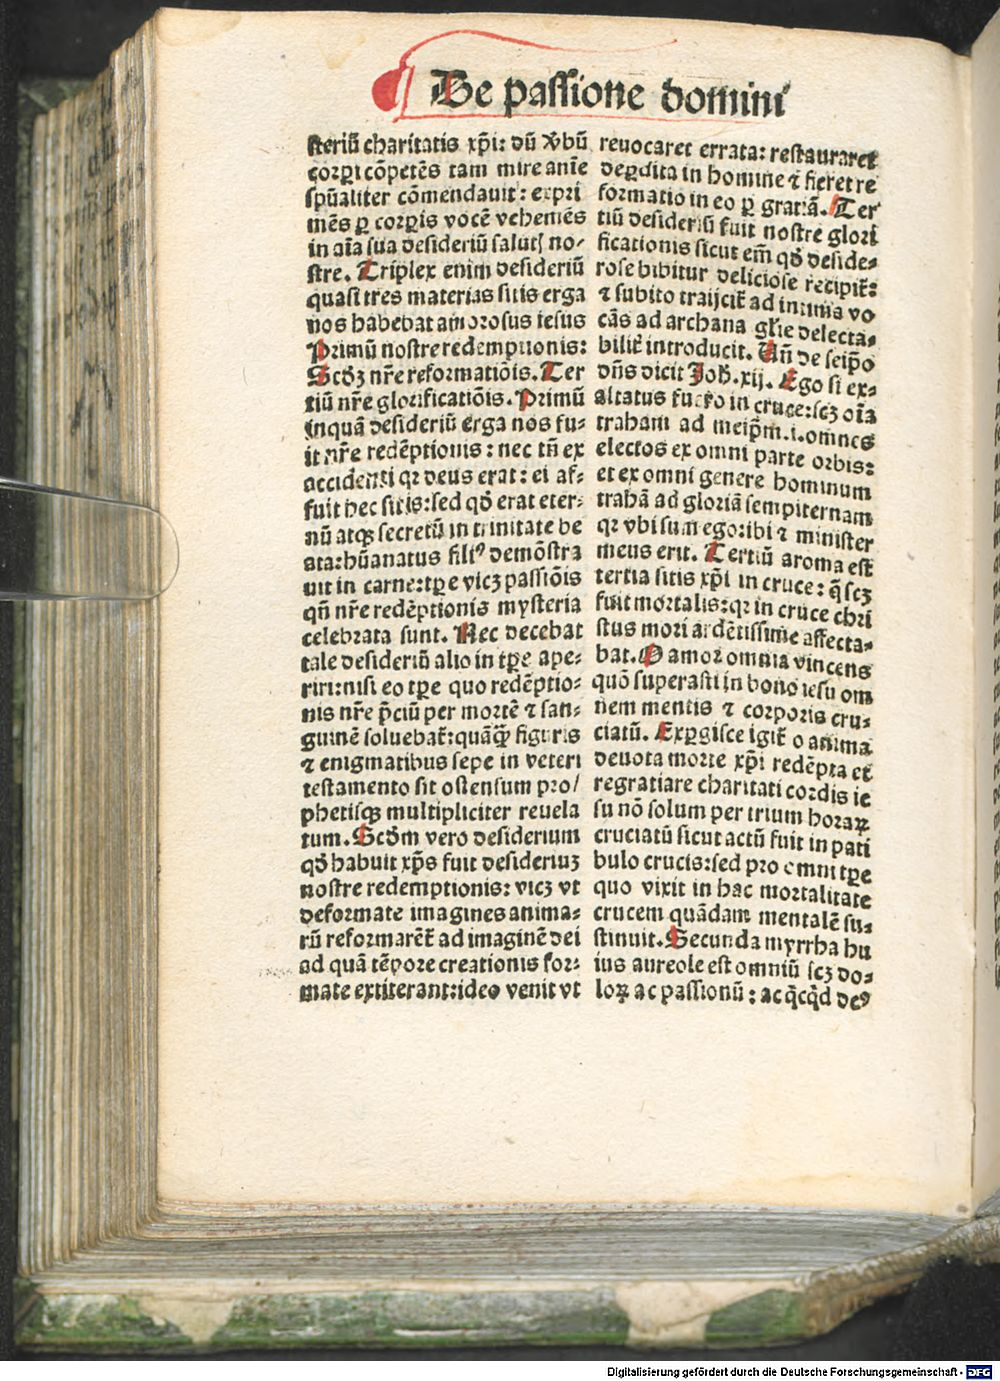 De passione domini
steriū charitatis xp̄i: dū v̓bū
corꝑi cōpetēs tam mire anīe
spūaliter cōmendauit: expri
mēs ꝑ corꝑis vocē vehemēs
in aīa sua desideriū salutꝭ no/
stre. Triplex enim desideriū
quasi tres materias sitis erga
nos habebat amorosus iesus
Primū nostre redemptionis:
Scd̓ꝫ nr̄e reformatiōis. Ter
tiū nr̄e glorificatiōis. Primū
inquā desideriū erga nos fu⸗
it nr̄e redēptionis: nec tn̄ ex
accidenti qꝛ deus erat: ei af⸗
fuit hec sitis: sed qd̓ erat eter⸗
nū atqꝫ secretū in trinitate be
ata: hūanatus filiꝰ demōstra
uit in carne: tꝑe vicꝫ passiōis
qn̄ nr̄e redēptionis mysteria
celebrata sunt. Nec decebat
tale desideriū alio in tꝑe ape⸗
riri: nisi eo tꝑe quo redēptio⸗
nis nr̄e p̄ciū per mortē ⁊ san⸗
guinē soluebat̓: quāqꝫ̄ figuris
⁊ enigmatibus sepe in veteri
testamento sit ostensum pro/
phetisqꝫ multipliciter reuela
tum. Scd̓m vero desiderium
qd̓ habuit xp̄s fuit desideriuꝫ
nostre redemptionis: vicꝫ vt
deformate imagines anima⸗
rū reformarēt̓ ad imaginē dei
ad quā tēpore creationis for⸗
mate extiterant: ideo venit vt
reuocaret errata: restauraret
deꝑdita in homine ⁊ fieret re
formatio in eo ꝑ gratiā. Ter
tiū desideriū fuit nostre glori
ficationis sicut em̄ qd̓ deside⸗
rose bibitur deliciose recipit̓:
⁊ subito traijcit̓ ad intima vo
cās ad archana gl̓ie delecta⸗
bilit̓ introducit. Un̄ de seip̄o
dn̄s dicit Joh̄. xij. Ego si ex⸗
altatus fuero in cruce: scꝫ oīa
traham ad meip̄m .i. omnes
electos ex omni parte orbis:
et ex omni genere hominum
trahā ad gloriā sempiternam
qꝛ vbi sum ego: ibi ⁊ minister
meus erit. Tertiū aroma est
tertia sitis xp̄i in cruce: q̄ scꝫ
fuit mortalis: qꝛ in cruce chri
stus mori ardētissime affecta⸗
bat. O amor omnia vincens
quō superasti in bono iesu om
nem mentis ⁊ corporis cru⸗
ciatū. Exꝑgisce igit̓ o anima
deuota morte xp̄i redēpta et
regratiare charitati cordis ie
su nō solum per trium horaꝝ
cruciatū sicut actū fuit in pati
bulo crucis: sed pro omni tꝑe
quo vixit in hac mortalitate
crucem quādam mentalē su⸗
stinuit. Secunda myrrha hu
ius aureole est omniū scꝫ do⸗
loꝝ ac passionū: ac q̄cqd̄ deꝰ
Digitalisierung gefördert durch die Deutsche Forschungsgemeinschaft - DFG